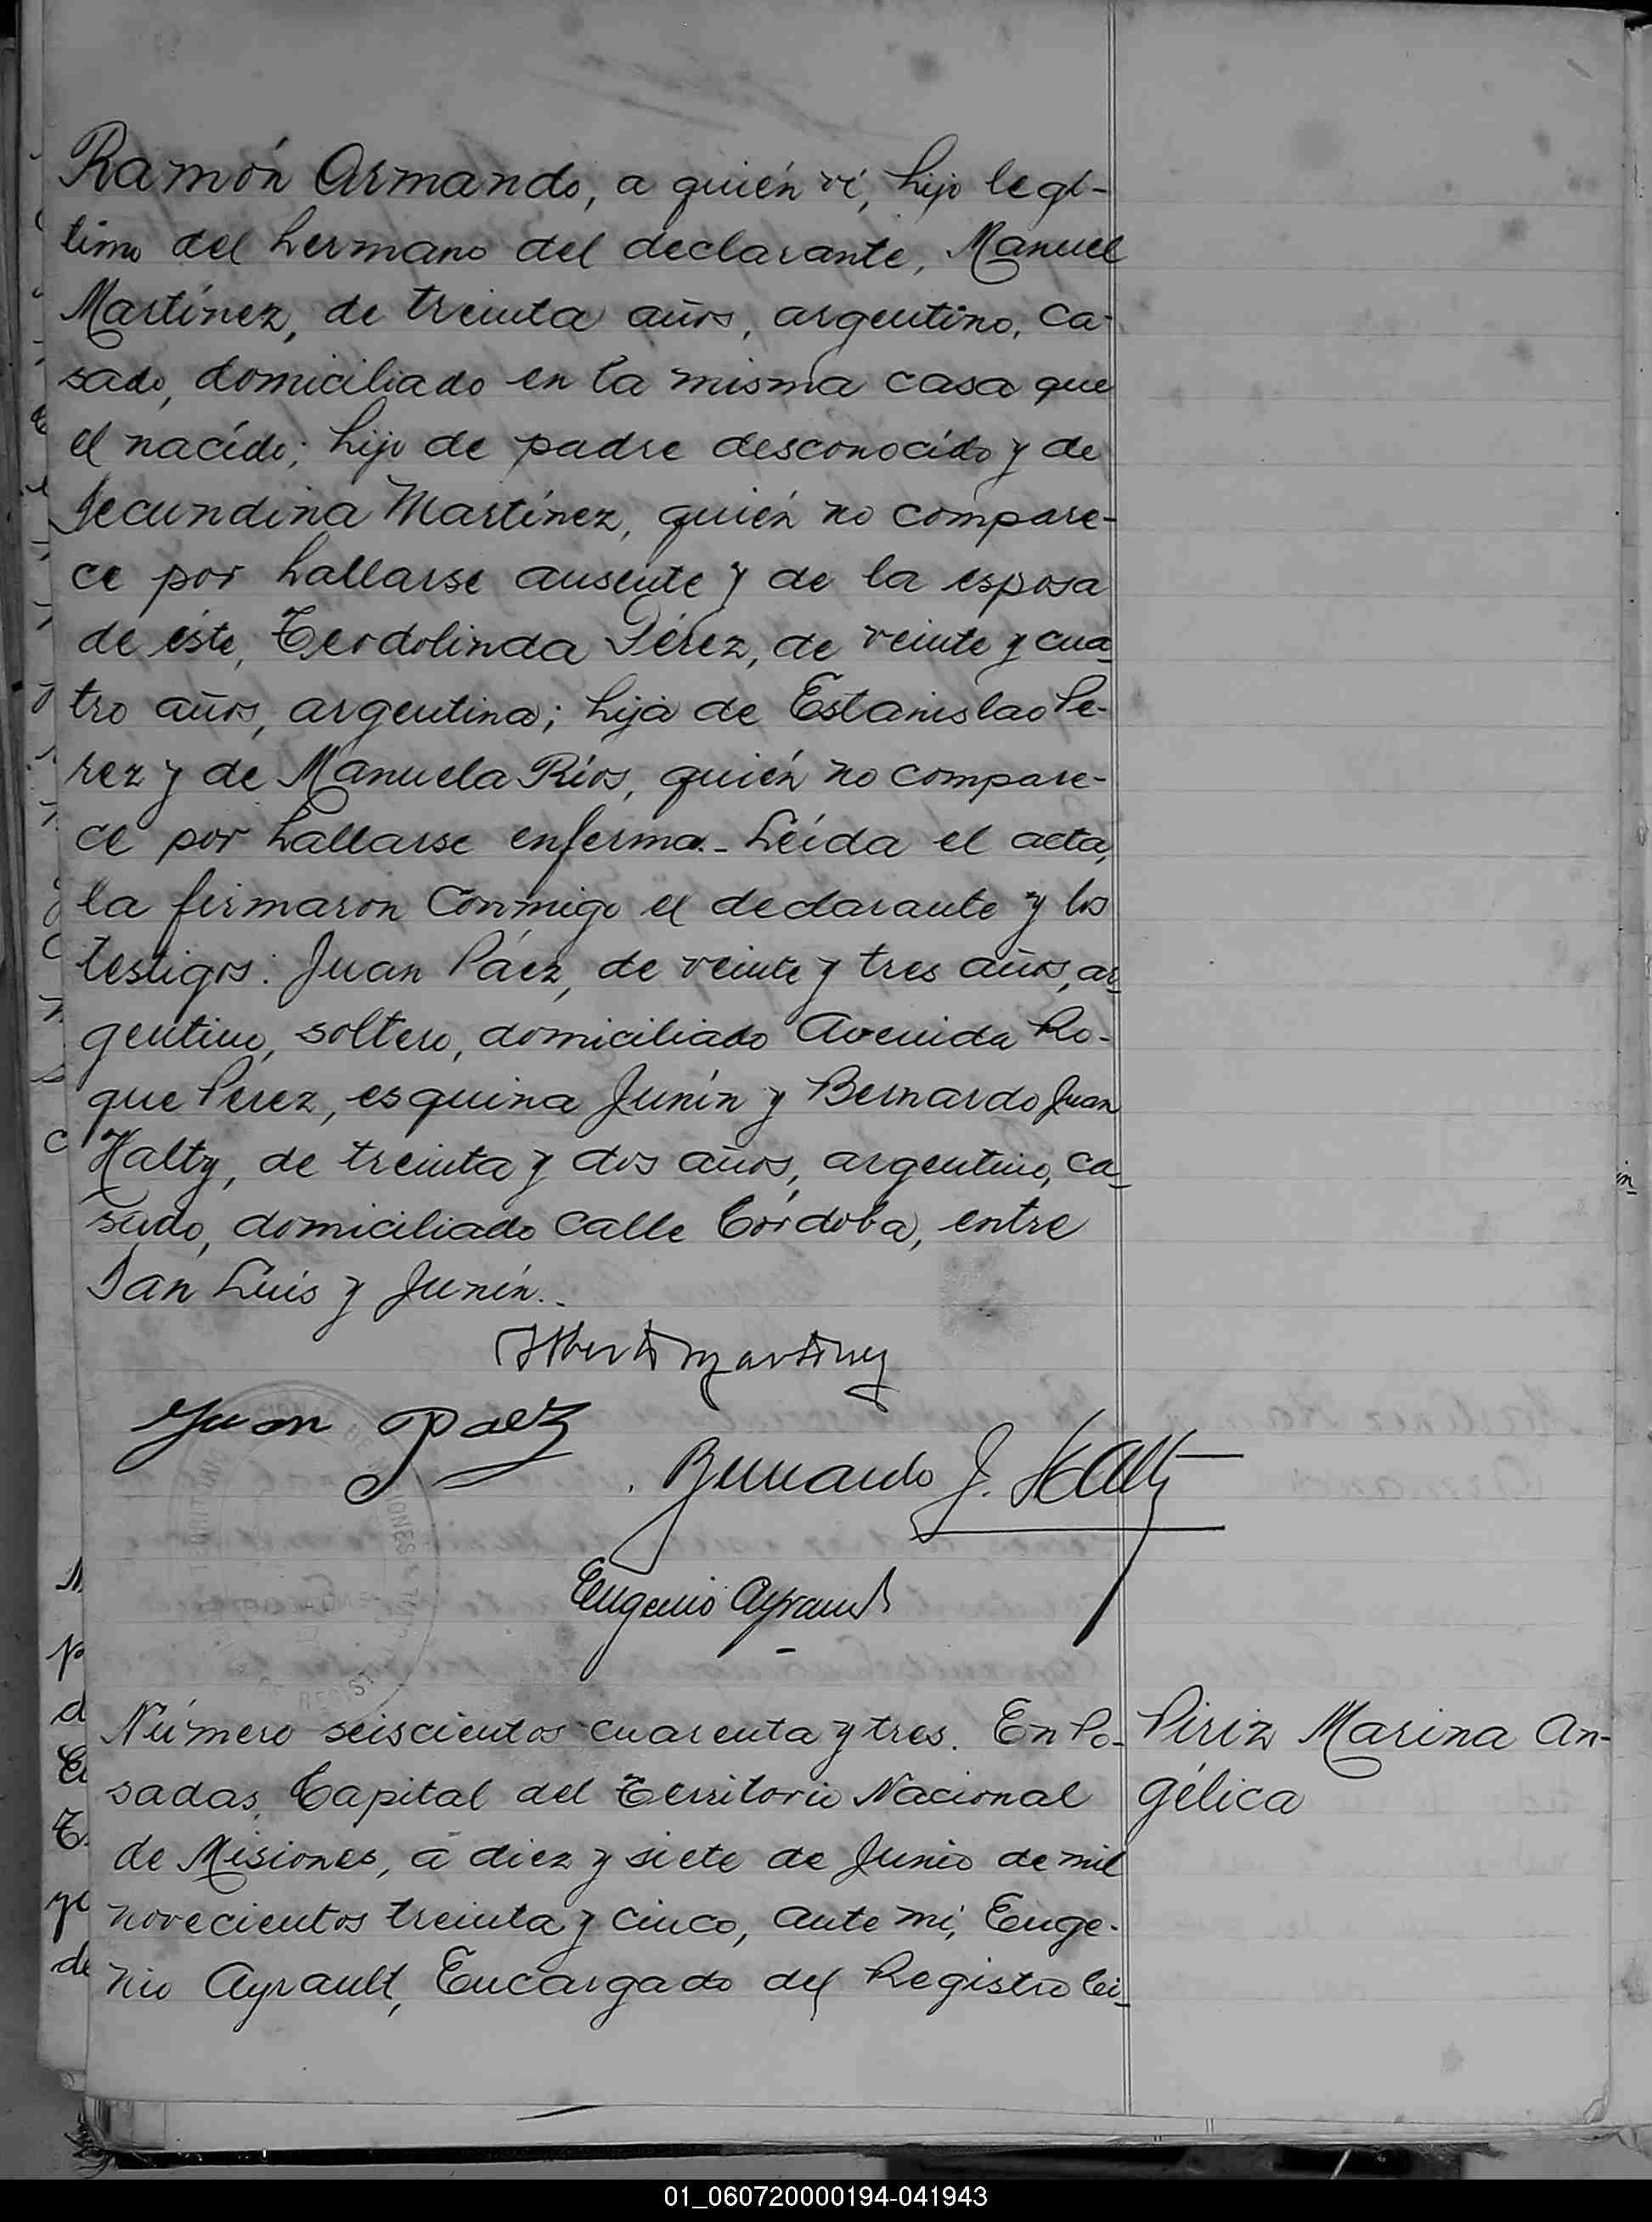 Ramón Armando, a quién ví, hijo legí-
timo del hermano del declarante, Manuel
Martínez, de treinta años, argentino, ca-
sado, domiciliado en la misma casa que
el nacído; hijo de padre desconocído y de
Secundina Martínez, quién no compare-
ce por hallarse ausente y de la esposa
de éste, Teodolinda Pérez, de veinte y cua-
tro años, argentina; hija de Estanislao Pe-
rez y de Manuela Ríos, quién no compare-
ce por hallarse enferma.- Leída el acta,
la firmaron conmigo el declarante y los
testigos: Juan Páez, de veinte y tres años, ar-
gentino, soltero, domiciliado Avenida Ro-
que Perez, esquina Junín y Bernardo Juan
Halty, de treinta y dos años, argentino, ca-
sado, domiciliado calle Córdoba, entre
San Luis y Junín.-
Alberto Martinez
Juan Paez
Bernardo J. Halty
Eugenio Ayrault
Número seiscientos cuarenta y tres. En Po-
sadas, Capital del Territorio Nacional
de Misiones, á diez y siete de Junio de mil
novecientos treinta y cinco, ante mí, Euge-
nio Ayrault, Encargado del Registro Ci-
Piriz Marina An-
gélica
01_060720000194-041943